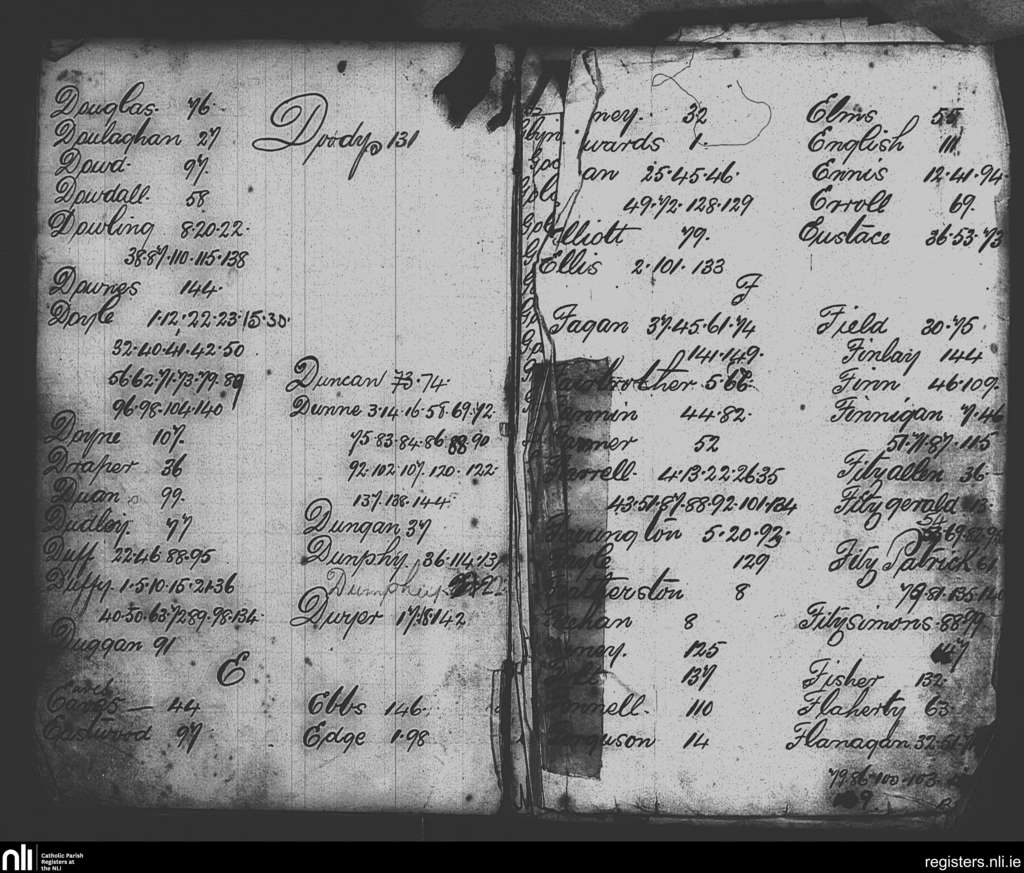 Douglas. 76.
Doulaghan 27
Dowd. 97.
Dowdall. 58
Dowling 8.20.22.
38.87.110.115.138
Downes 144.
Doyle 1.12.22.23.15.30.
32.40.41.42.50
56.62.71.73.79.89
96.98.104.140
Doyne 107.
Draper 36
Duan 99.
Dudley. 77
Duff 22.46 88.95
Duffy 1.5.10.15.21.36
40.50.63.72 89.98.134.
Duggan 91
E
44
Eastwood 97
Doody 131
Duncan 73.74.
Dunne 3.14.16.58.69.72.
75.83.84.86 88.90
92.102.107.120.122.
137.138.144.
Dungan 37
Dunphy. 36.114.131
Dumphey
Dwyer 17.18.142
Ebbs 146.
Edge 1.98
ney. 32
wards 1.
an 25.45.46.
49.72.128.129
Elliott 79.
Ellis 2.101.133
F
Fagan 37.45.61.74
141.149.
Fairbrother 5.66.
Fannin 44.82.
Farmer 52
Farrell 4.13.22.26 35
43.51.87.88.92.101.134
Farrington 5.20.92.
129
Featherston 8
Feehan 8
125
137
Fennell. 110
Ferguson 14
Elms 55
English 111
Ennis 12.41.94.
Erroll 69.
Eustace 36.53.73
Field 30.75.
Finlay 144
Finn 46.109.
Finnigan 7.46
51.71.87.115
Fitzallen 36.
Fitzgerald 13.
54
Fitz Patrick 61
79.81.135.140
Fitzsimons.88 99
147
Fisher 132.
Flaherty 63.
Flanagan 32.51.71
79.86.100.103.
nli
Catholic Parish
Registers at
the NLI
registers.nli.ie